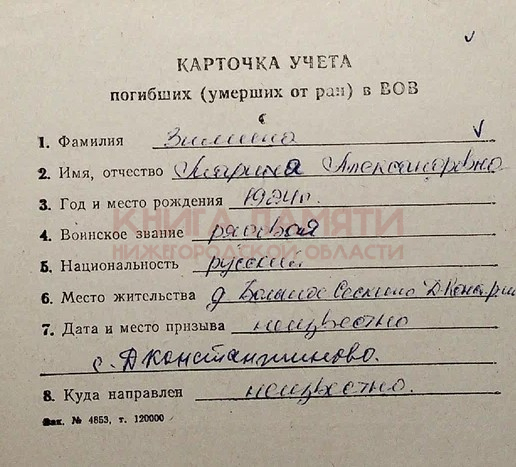 КАРТОЧКА УЧЕТА
погибших (умерших от ран) в ВОВ
1. Фамилия Зимина
2. Имя, отчество Марина Александровна
3. Год и место рождения 1924г.
КНИГА ПАМЯТИ
4. Воинское звание рядовая
НИЖЕГОРОДСКОЙ ОБЛАСТИ
5. Национальность русский
6. Место жительства д Большое Сескино Д Конст
7. Дата и место призыва неизвестно
с. Д Константиново.
8. Куда направлен неизвестно.
Зак. № 4853, т. 120000